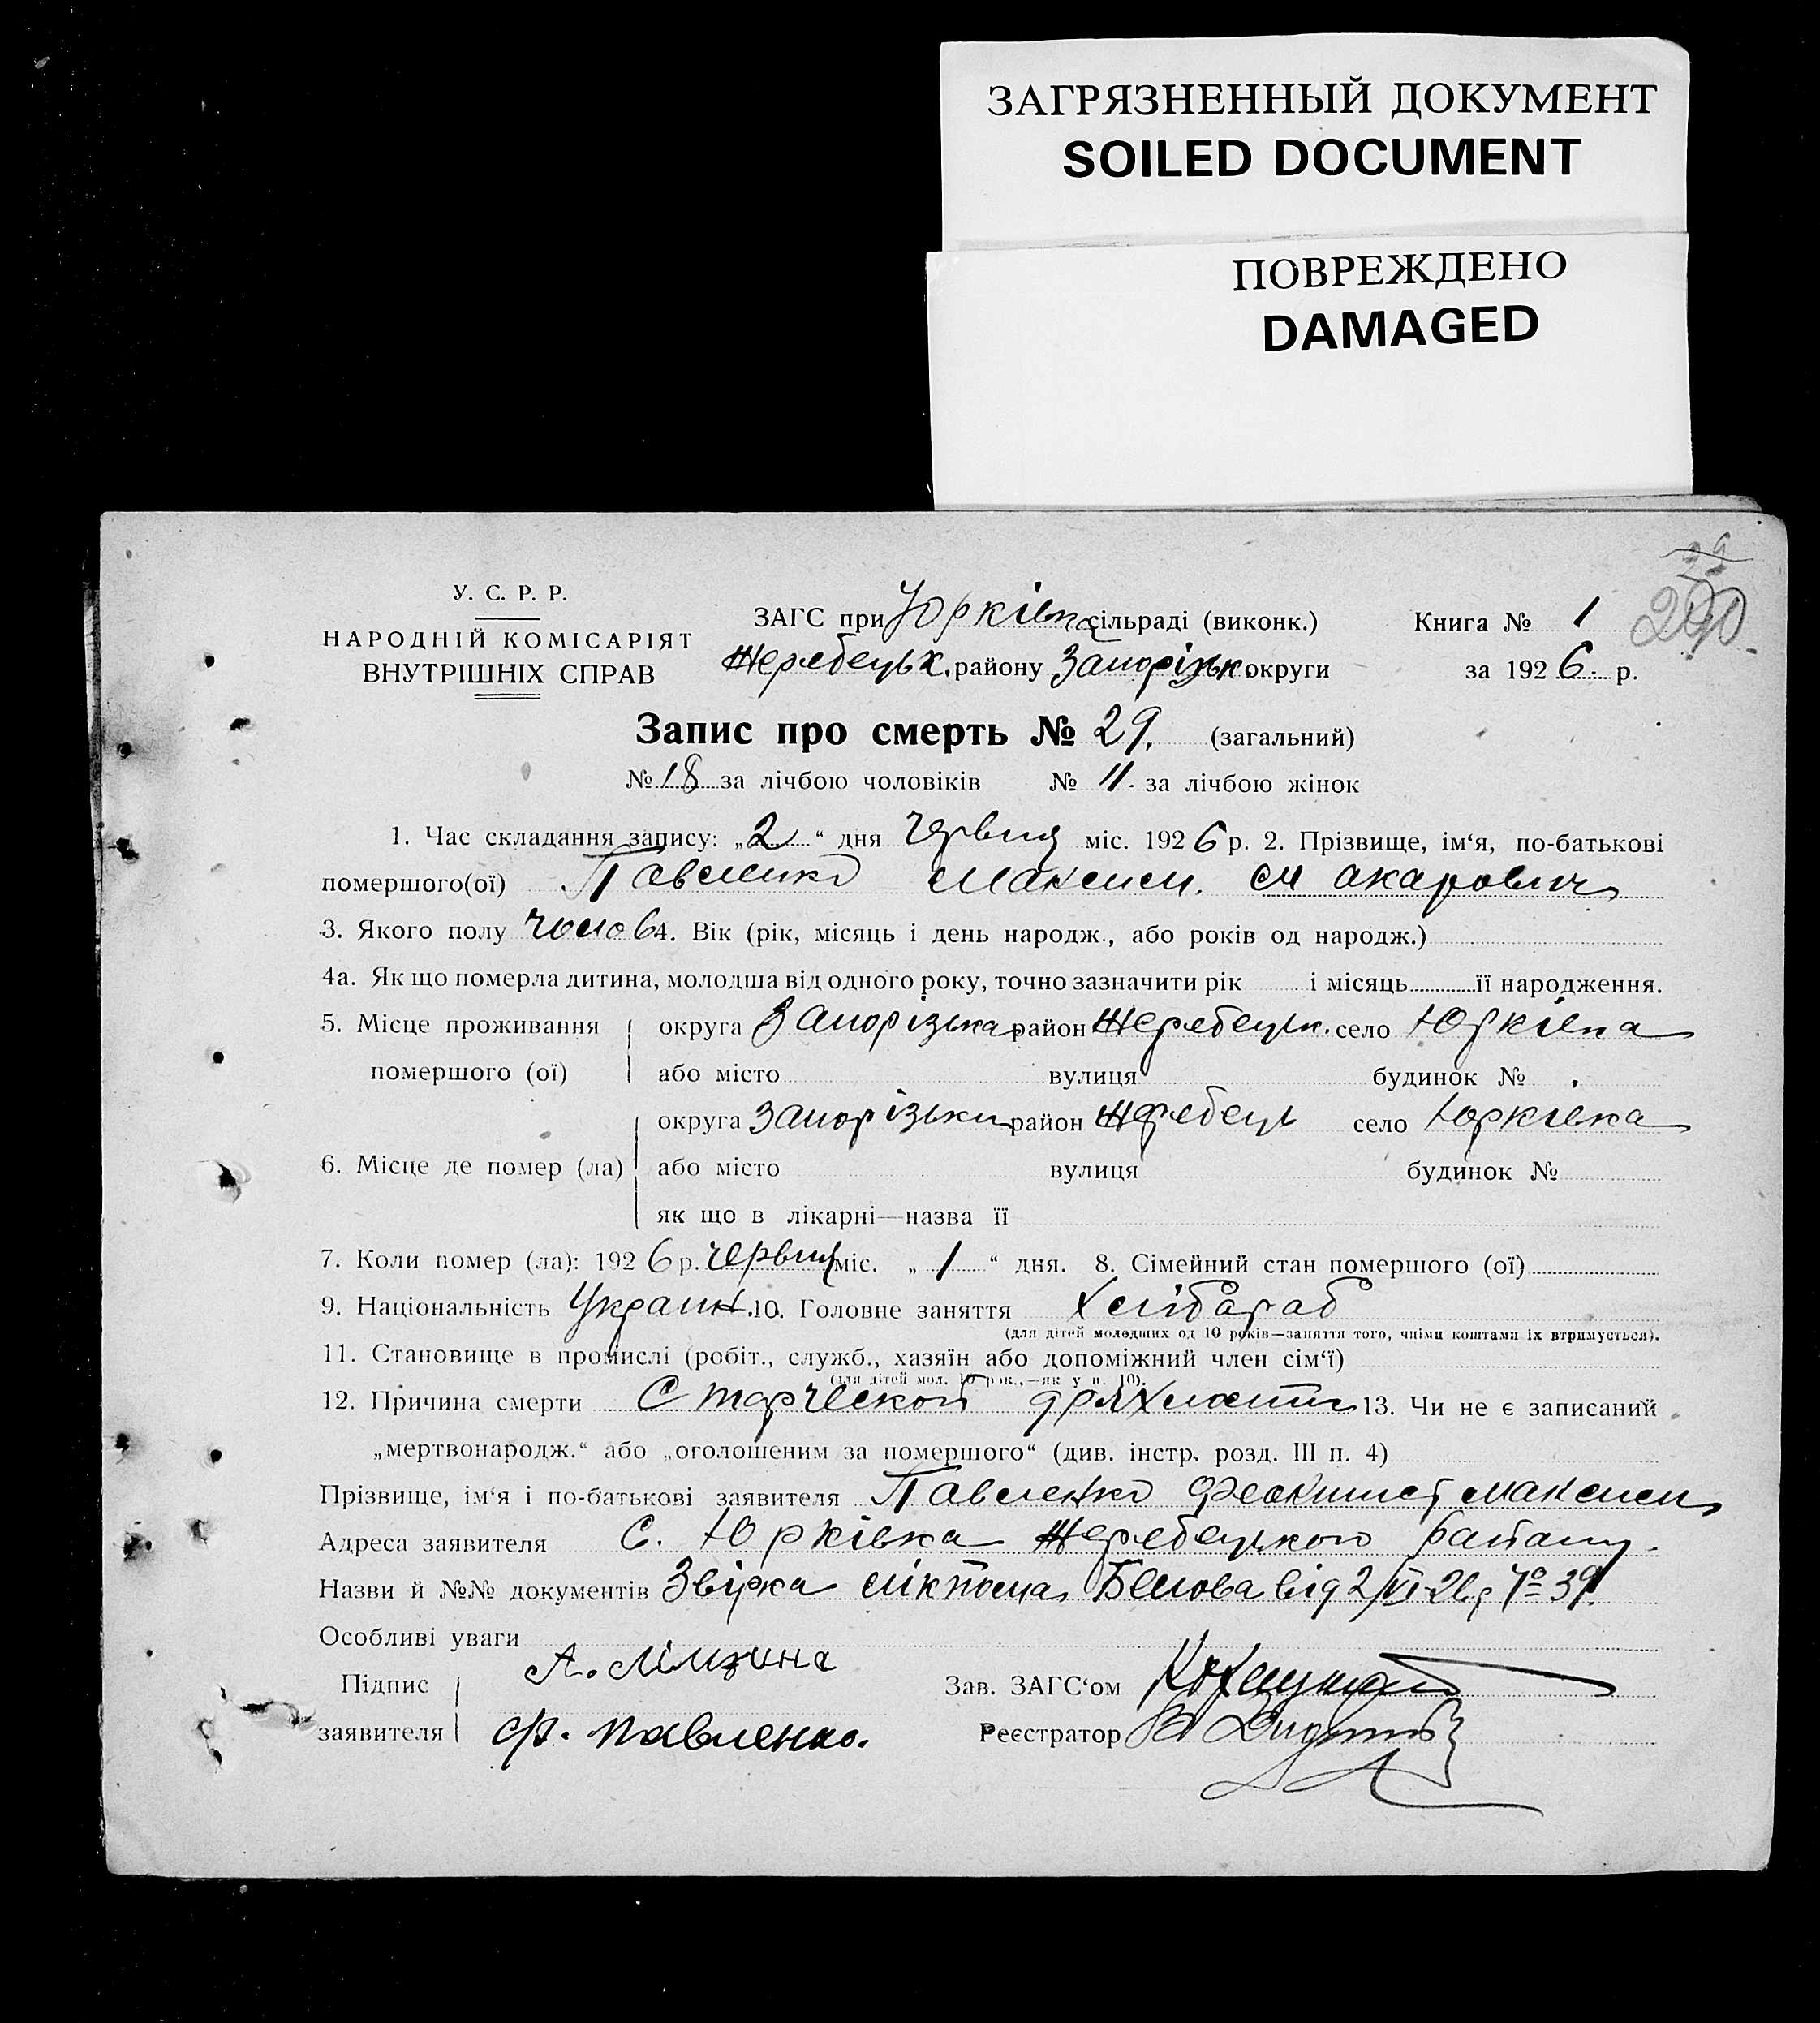 ЗАГРЯЗНЕННЫЙ ДОКУМЕНТ
SOILED DOCUMENT
ПОВРЕЖДЕНО
DAMAGED
29
У. С. Р. Р.
НАРОДНІЙ КОМІСАРІЯТ
ВНУТРІШНІХ СПРАВ
ЗАГС при Юрківка сільраді (виконк.)
Жеребецьк. району Запорізьк. округи
Книга № 1
за 1926 р.
Запис про смерть № 29. (загальний)
№ 18 за лічбою чоловіків № 11. за лічбою жінок
1. Час складання запису: „2“ дня червня міс. 1926 р. 2. Прізвище, ім‘я, по-батькові
помершого(ої) Павленко Максим. Макарович
3. Якого полу чолов 4. Вік (рік, місяць і день народж., або років од народж.)
4а. Як що померла дитина, молодша від одного року, точно зазначити рік і місяць її народження.
5. Місце проживання помершого (ої)
округа Запорізька район Жеребецьк. село Юрківка
або місто вулиця будинок №
6. Місце де помер (ла)
округа Запорізька район Жеребець село Юрківка
або місто вулиця будинок №
як що в лікарні—назва її
7. Коли помер (ла): 1926 р. червня міс. „1“ дня. 8. Сімейний стан помершого (ої)
9. Національність Україн. 10. Головне заняття Хлібараб
(для дітей молодших од 10 років—заняття того, чиїми коштами їх втримується).
11. Становище в промислі (робіт., служб., хазяїн або допоміжний член сім‘ї)
(для дітей мол. 10 рок.,—як у п. 10).
12. Причина смерти Старческой дряхлости 13. Чи не є записаний
„мертвонародж.“ або „оголошеним за помершого“ (див. інстр. розд. III п. 4)
Прізвище, ім‘я і по-батькові заявителя Павленко Феоктист Максим
Адреса заявителя С. Юрківка Жеребецького Району.
Назви й №№ документів Звірка від 2/VI-26р № 39.
Особливі уваги
Підпис заявителя
Ф. Павленко.
Зав. ЗАГС‘ом
Реєстратор